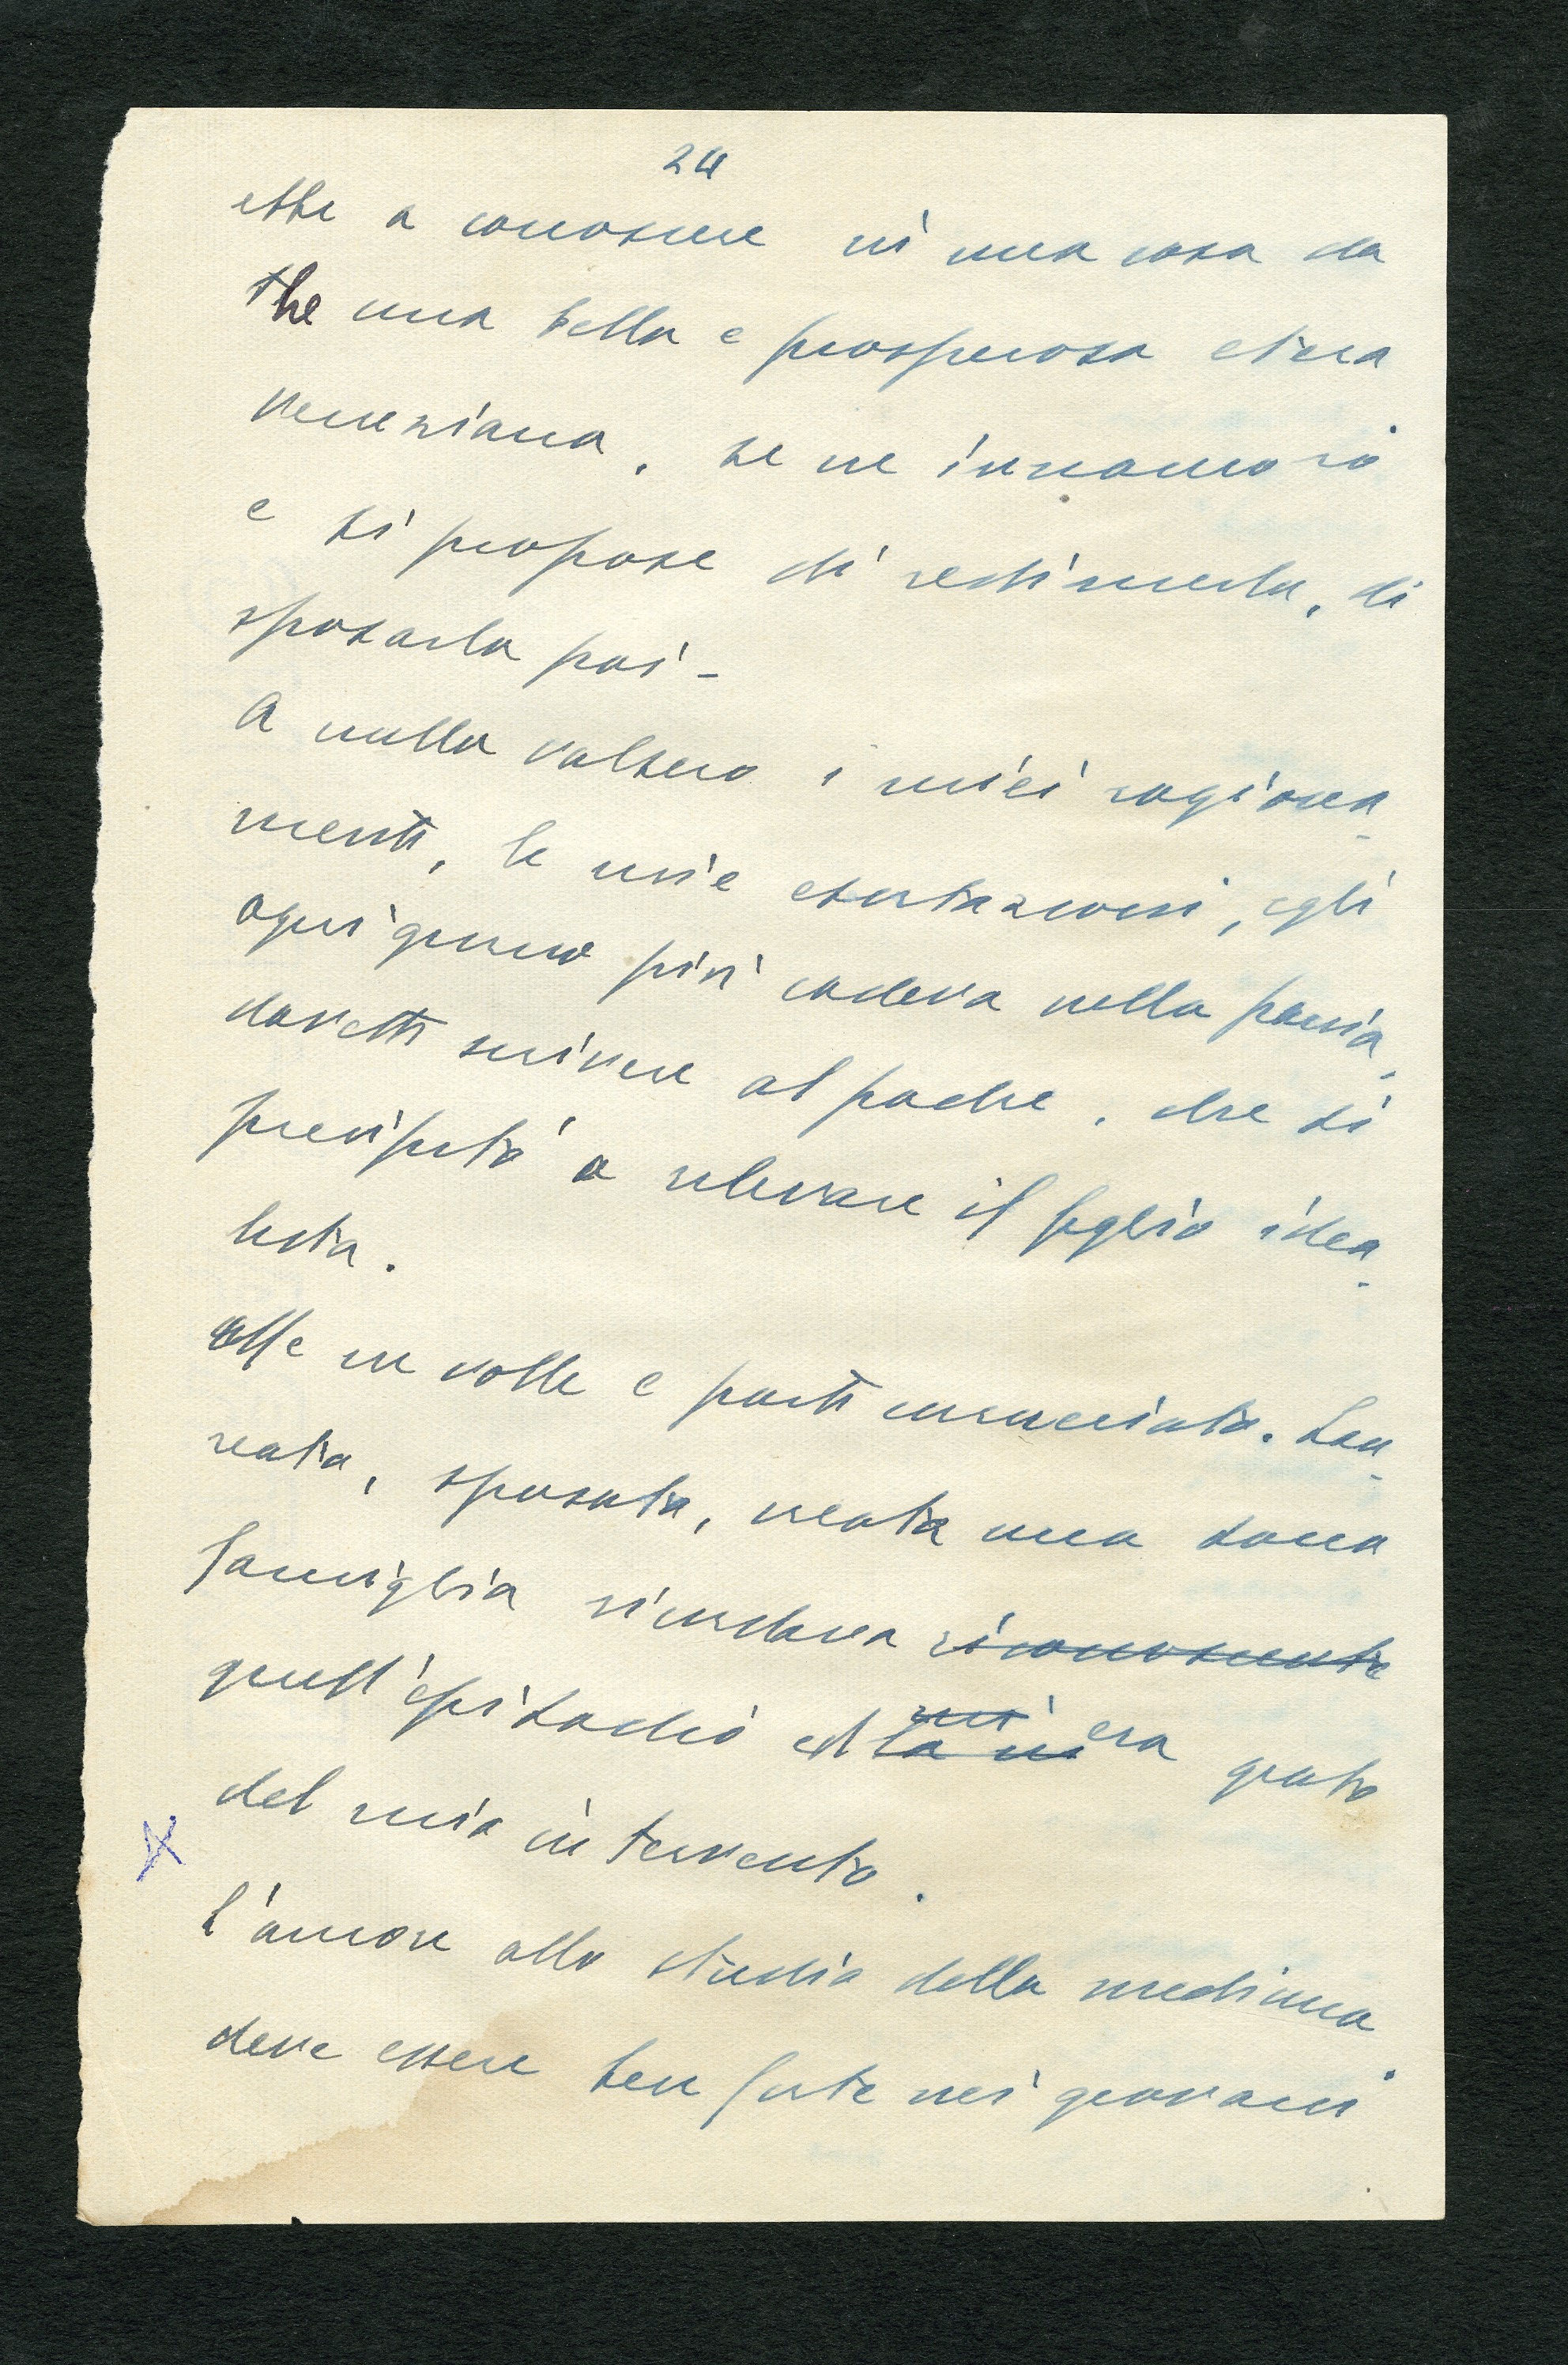 24
ebbe a conoscere in una casa da
the una bella e prosperosa etera
veneziana, se ne innamorò
e si propose di redimerla, di
sposarla poi -
A nulla valsero i miei ragiona-
menti, le mie esortazioni, egli
ogni giorno più cadeva nella pania,
dovetti scrivere al padre, che si
precipitò a rilevare il figlio idea-
lista.
Ella ne volle e partì
reato, sposato, creata una sana
famiglia ricordava riconoscente
quell'episodio ed la mi mi era grato
del mio intervento.
X
L'amore allo studio della medicina
deve essere ben forte nei giovani